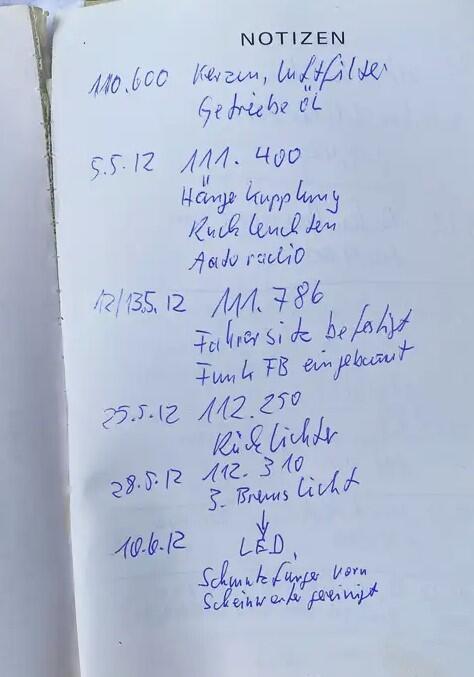 NOTIZEN
110.600 Kerzen, Luftfilter
Getriebe öl
5.5.12 111.400
Hängekupplung
Ruckleuchten
Autoradio
12/13.5.12 111.786
Fahrersitz befestigt
Funk FB eingebaut
25.5.12 112.250
Rücklichter
28.5.12 112.310
3. Bremslicht
↓
10.6.12 LED,
Schmutzfänger vorn
Scheinwerfer gereinigt